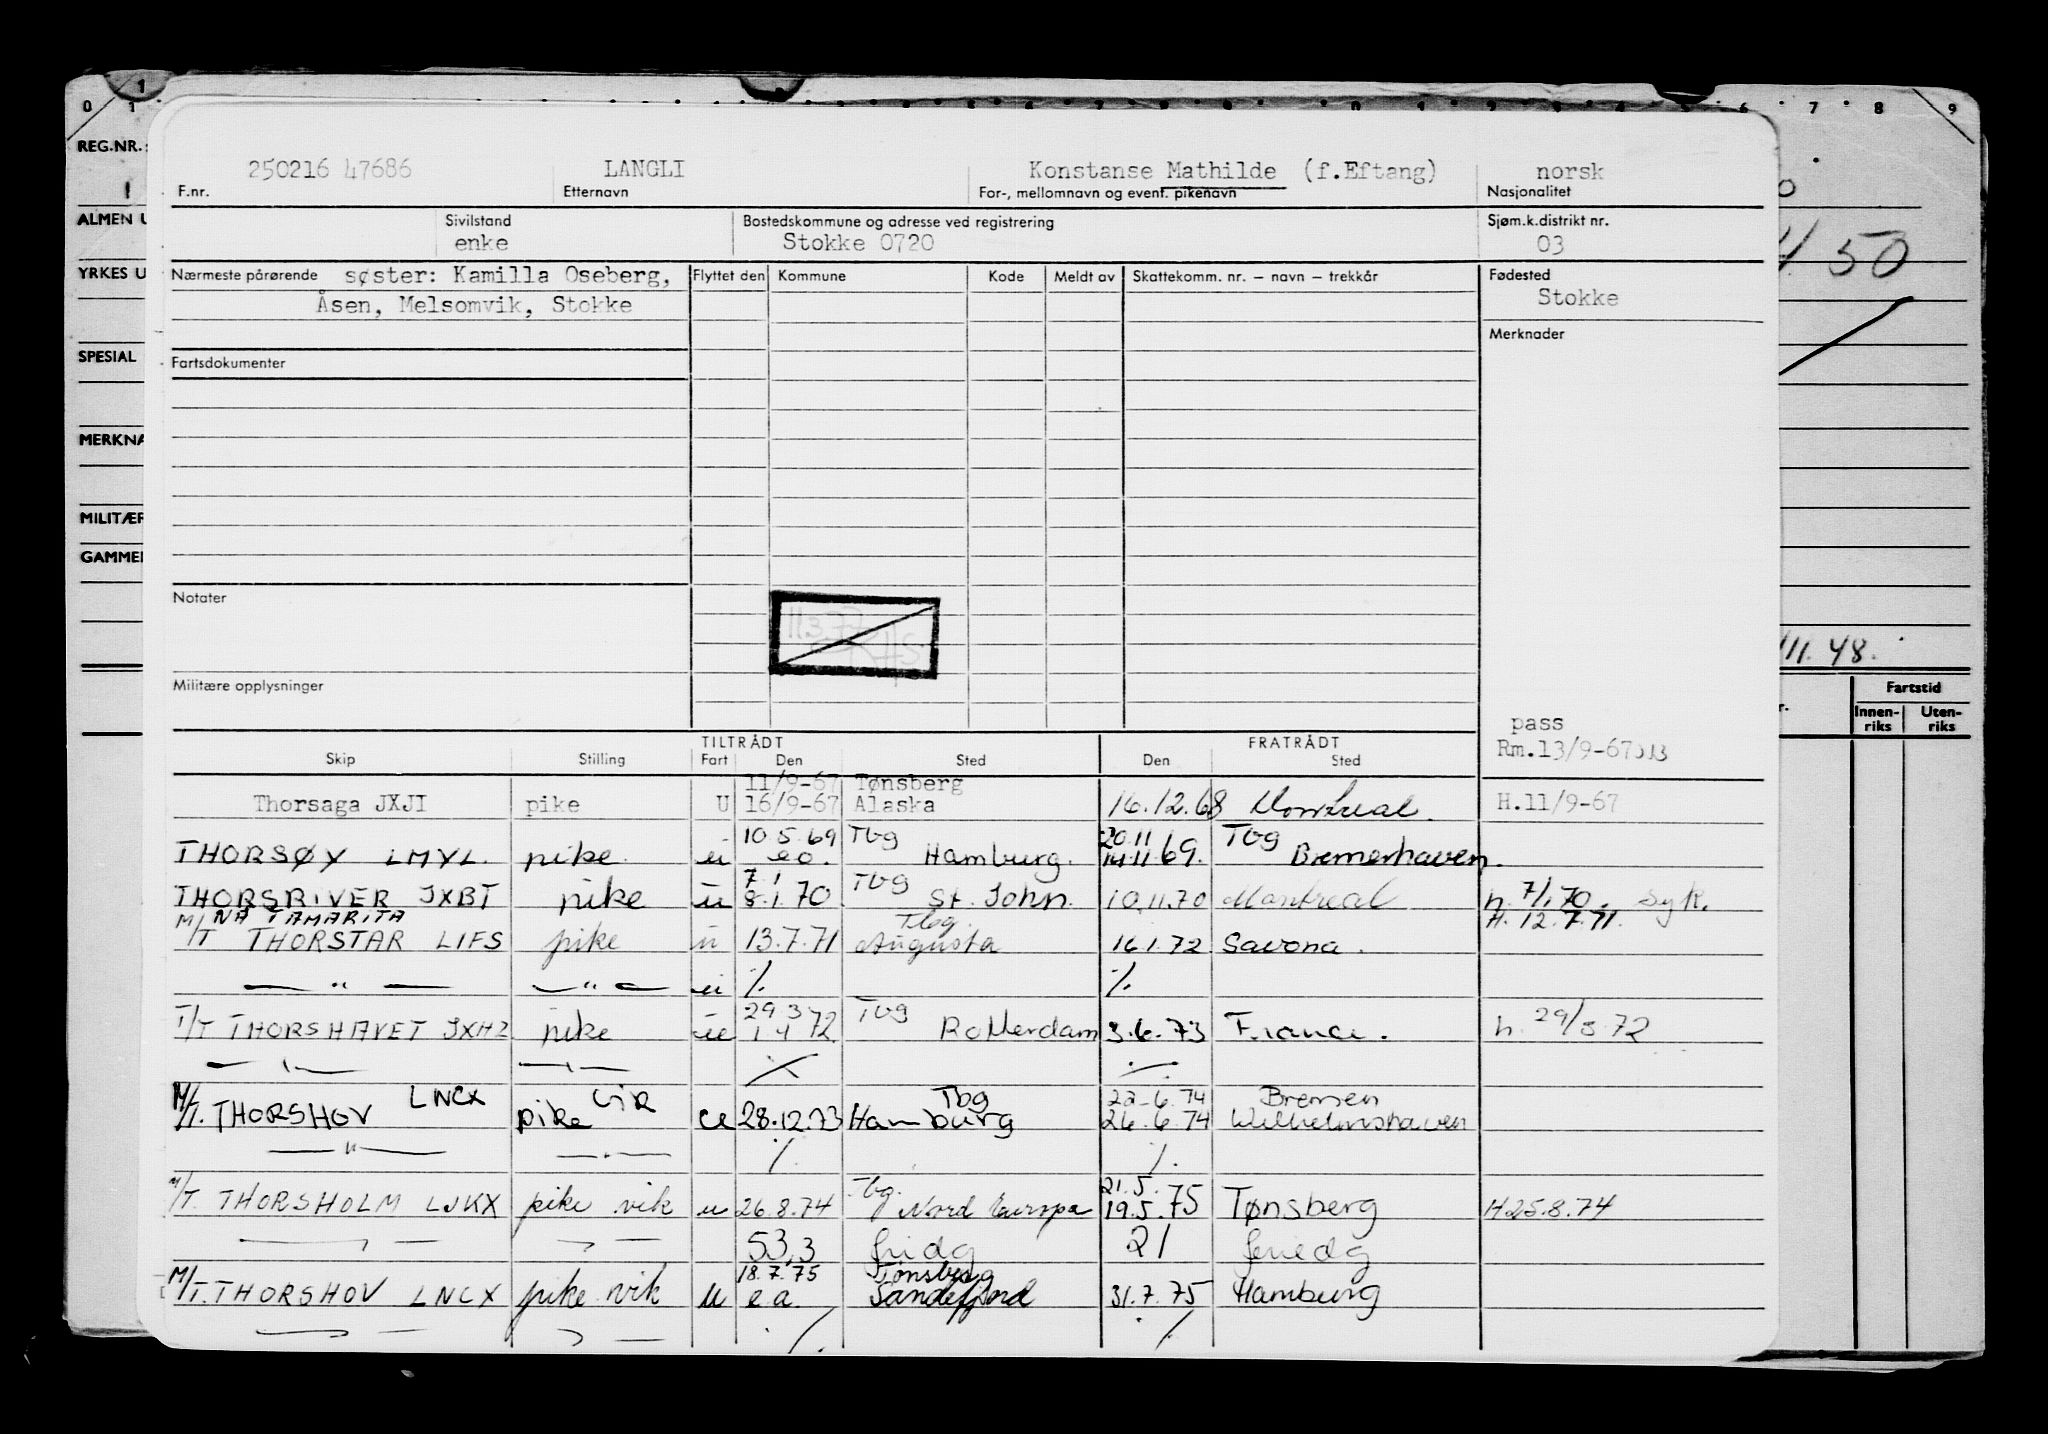 0 1 1 6 7 8 9
REG.NR.:
ALMEN U
YRKES U
SPESIAL
MERKNA
MILITÆR
GAMMEL
50
11.48.
Fartstid
Innen-riks Uten-riks
250216 47686 LANGLI Konstanse Mathilde (f.Eftang) norsk
F.nr. Etternavn For-, mellomnavn og event. pikenavn Nasjonalitet
Sivilstand Bostedskommune og adresse ved registrering Sjøm.k.distrikt nr.
enke Stokke 0720 03
Nærmeste pårørende søster: Kamilla Oseberg, Flyttet den Kommune Kode Meldt av Skattekomm. nr. – navn – trekkår Fødested
Åsen, Melsomvik, Stokke Stokke
Merknader
Fartsdokumenter
Notater
Militære opplysninger
pass
TILTRÅDT FRATRÅDT
Rm.13/9-67
Skip Stilling Fart Den Sted Den Sted
11/9-67 Tønsberg
Thorsaga JXJI pike U 16/9-67 Alaska 16.12.68 Montreal. H.11/9-67
10.5.69 Tbg 20.11 Tbg
THORSØY LMYL. pike u e.o. Hamburg. 14.11.69. Bremerhaven.
7.1 Tbg
THORSRIVER JXBT pike u 8.1.70 St. John. 10.11.70 Montreal h. 7/1.70. Syk.
NÅ TAMARITA Tbg. H. 12.7.71.
M/T THORSTAR LIFS pike u 13.7.71 Augusta 16.1.72 Savona.
— " — — " — u ٪ ٪
29 3 Tbg
T/T THORSHAVET JXHZ pike u 1 4 72 Rotterdam 3.6.73 France. h. 29/3.72
LNCX vik Tbg 22-6.74 Bremen
M/T. THORSHOV pike u 28.12.73 Hamburg 26.6.74 Wilhelmshaven
— " — — " — ٪ ٪.
Tbg. 21.5.
M/T. THORSHOLM LJKX pike vik u 26.8.74 Nord Europa 19.5.75 Tønsberg H 25.8.74
53,3 fridg 21 feriedg
18.7.75 Tønsberg
M/T. THORSHOV LNCX pike vik u e.a. Sandefjord 31.7.75 Hamburg